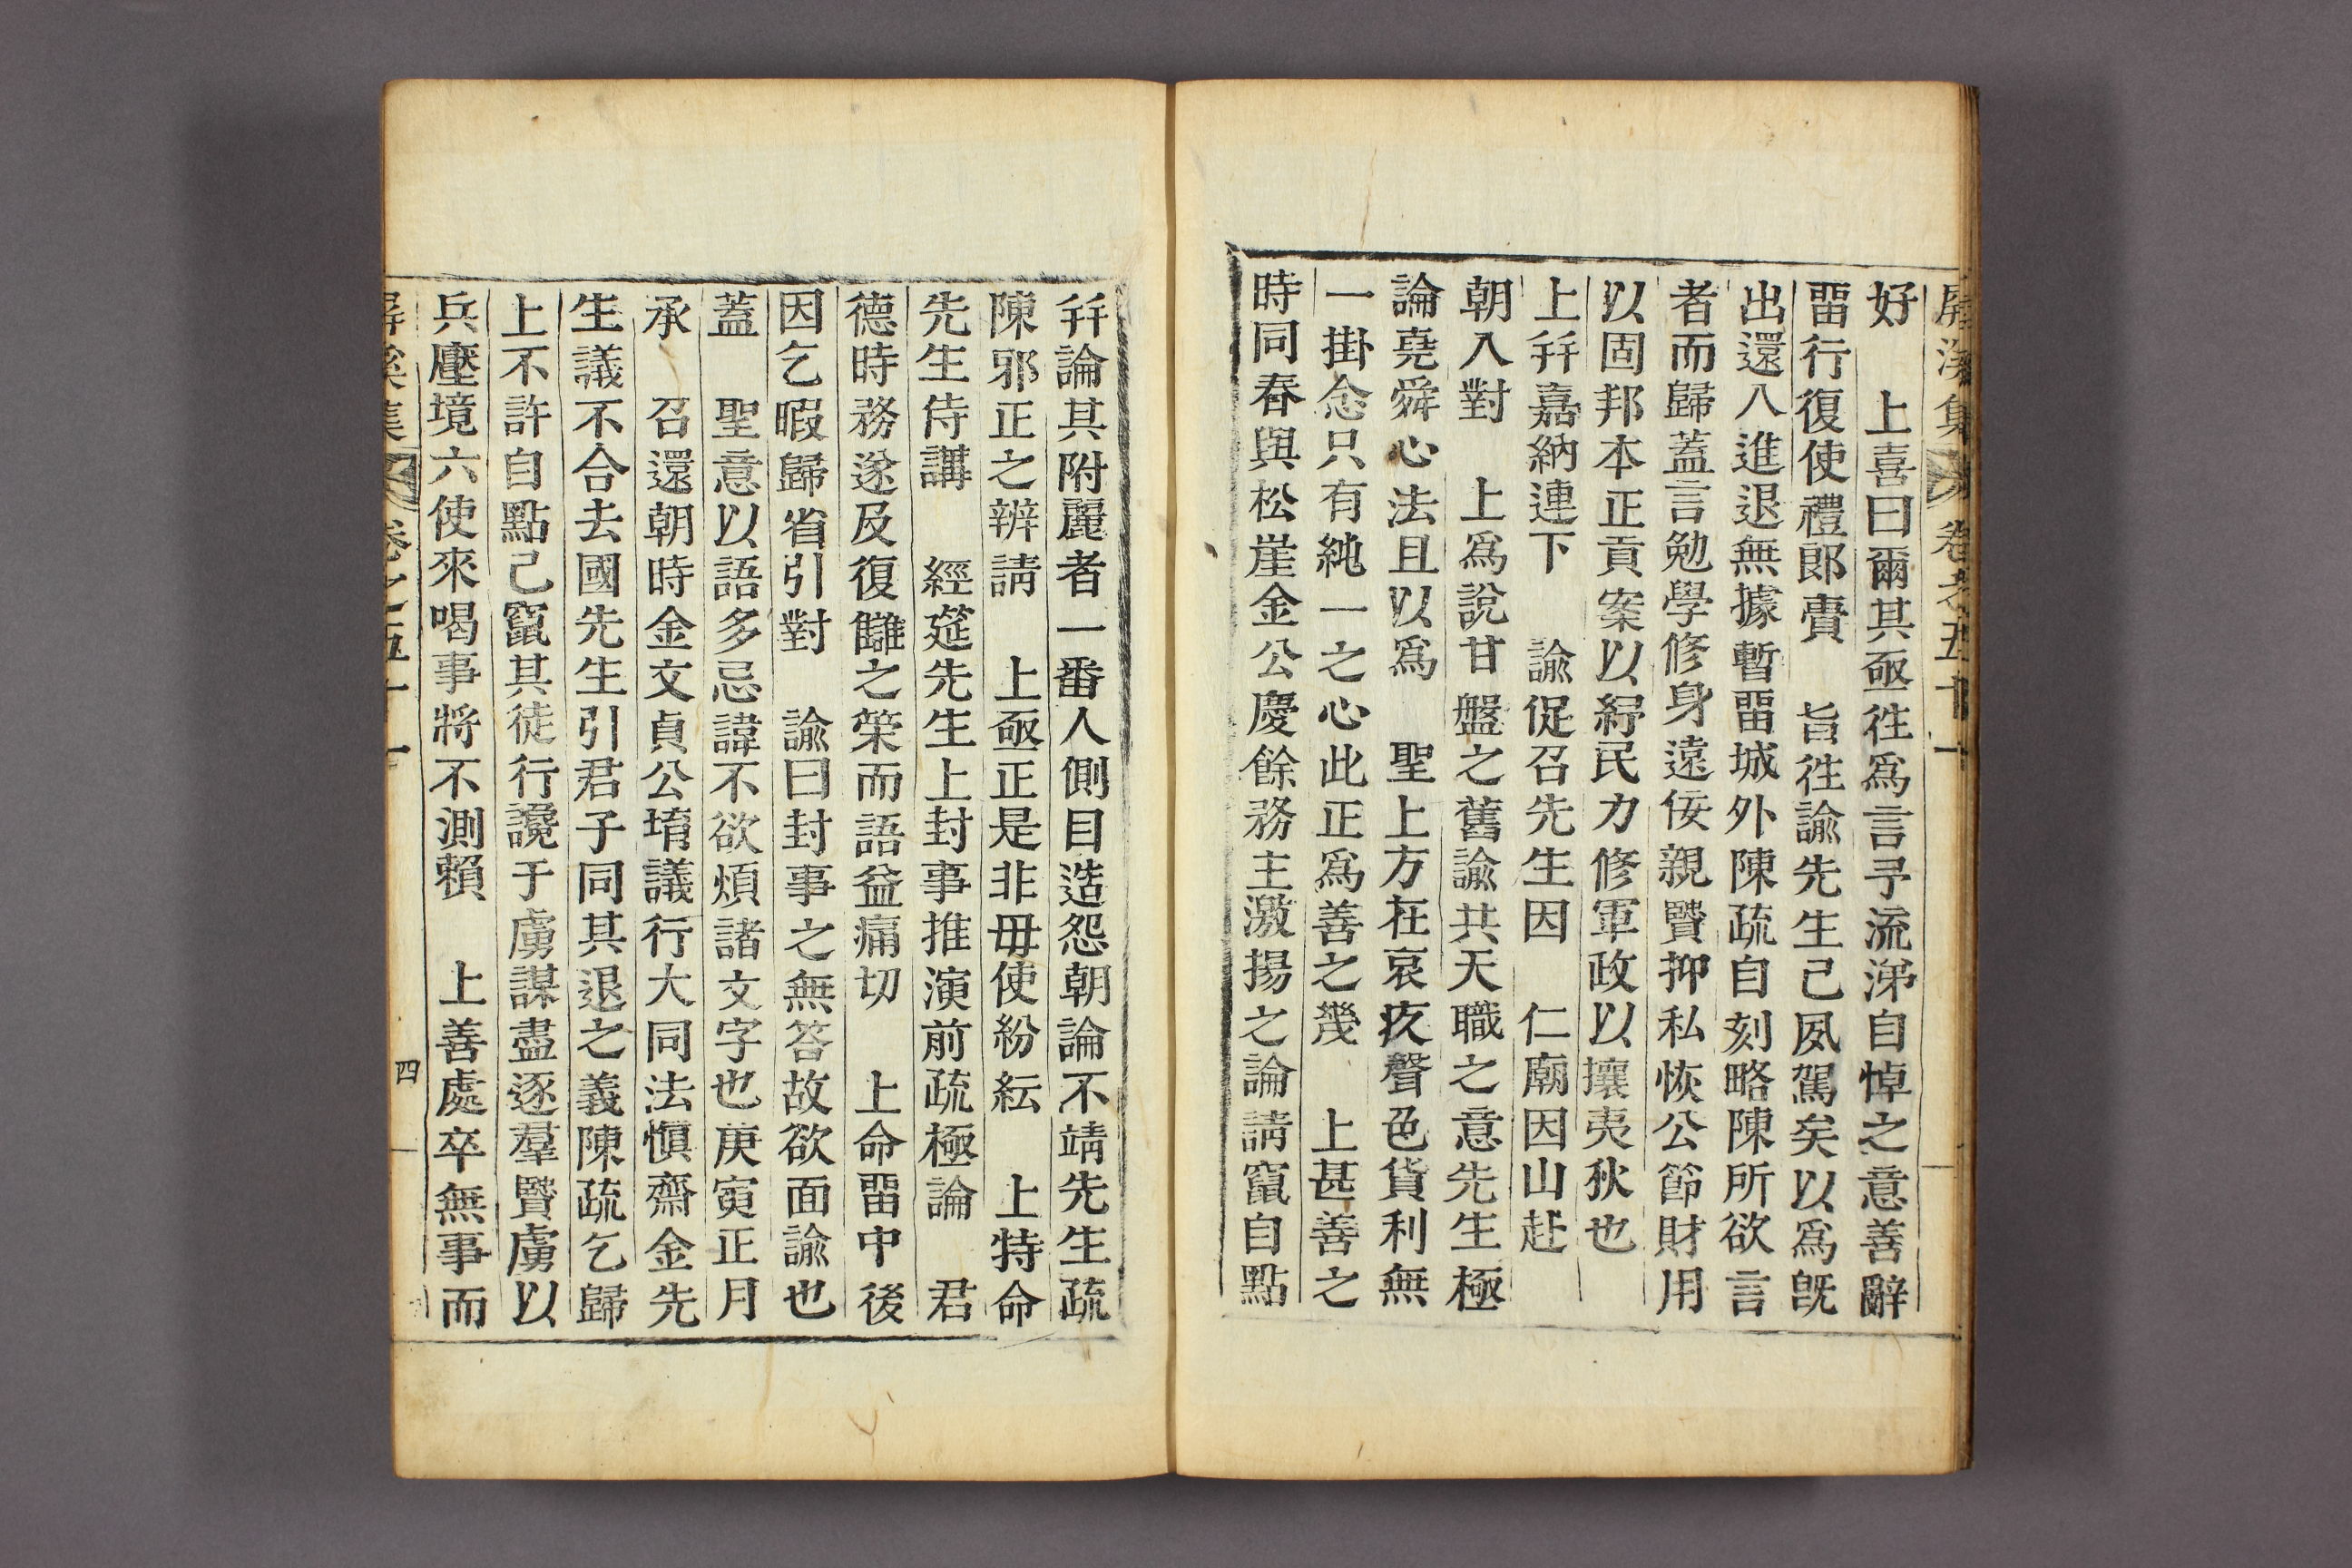 屛溪集 卷之五十一
好 上喜曰爾其亟徃爲言予流涕自悼之意善辭
畱行復使禮郞賷 旨徃諭先生已夙駕矣以爲旣
出還入進退無據暫畱城外陳疏自刻略陳所欲言
者而歸蓋言勉學修身遠佞親賢抑私恢公節財用
以固邦本正貢案以紓民力修軍政以攘夷狄也
上幷嘉納連下 諭促召先生因 仁廟因山赴
朝入對 上爲說甘盤之舊諭共天職之意先生極
論堯舜心法且以爲 聖上方在哀疚聲色貨利無
一掛念只有純一之心此正爲善之幾 上甚善之
時同春與松崖金公慶餘務主激揚之論請竄自點
幷論其附麗者一番人側目造怨朝論不靖先生疏
陳邪正之辨請 上亟正是非毋使紛紜 上特命
先生侍講 經筵先生上封事推演前疏極論 君
德時務遂及復讎之策而語益痛切 上命畱中後
因乞暇歸省引對 諭曰封事之無答故欲面諭也
蓋 聖意以語多忌諱不欲煩諸文字也庚寅正月
承 召還朝時金文貞公堉議行大同法愼齋金先
生議不合去國先生引君子同其退之義陳疏乞歸
上不許自點已竄其徒行讒于虜謀盡逐羣賢虜以
兵壓境六使來喝事將不測賴 上善處卒無事而
屛溪集 卷之五十一 四